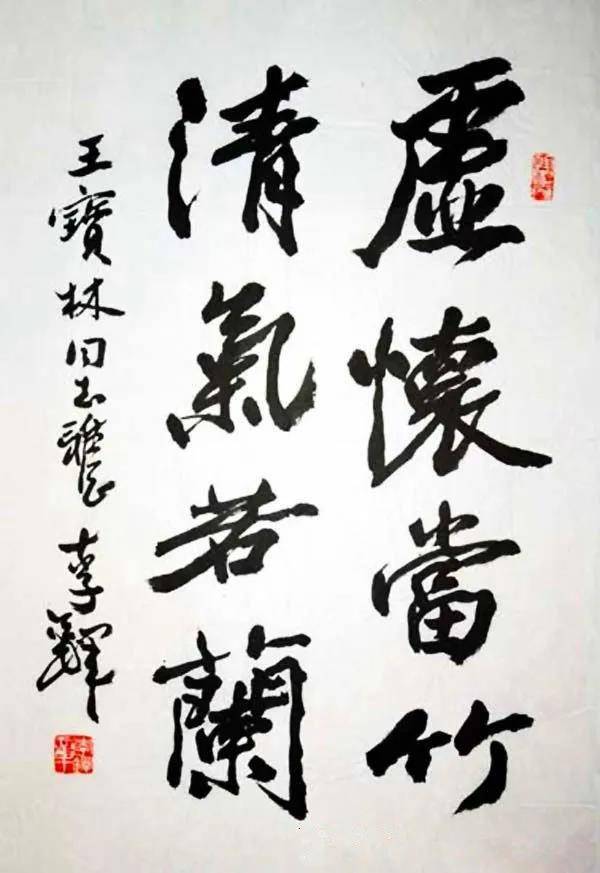 虛懷當竹
清氣若蘭
王寶林同志雅正 李鐸